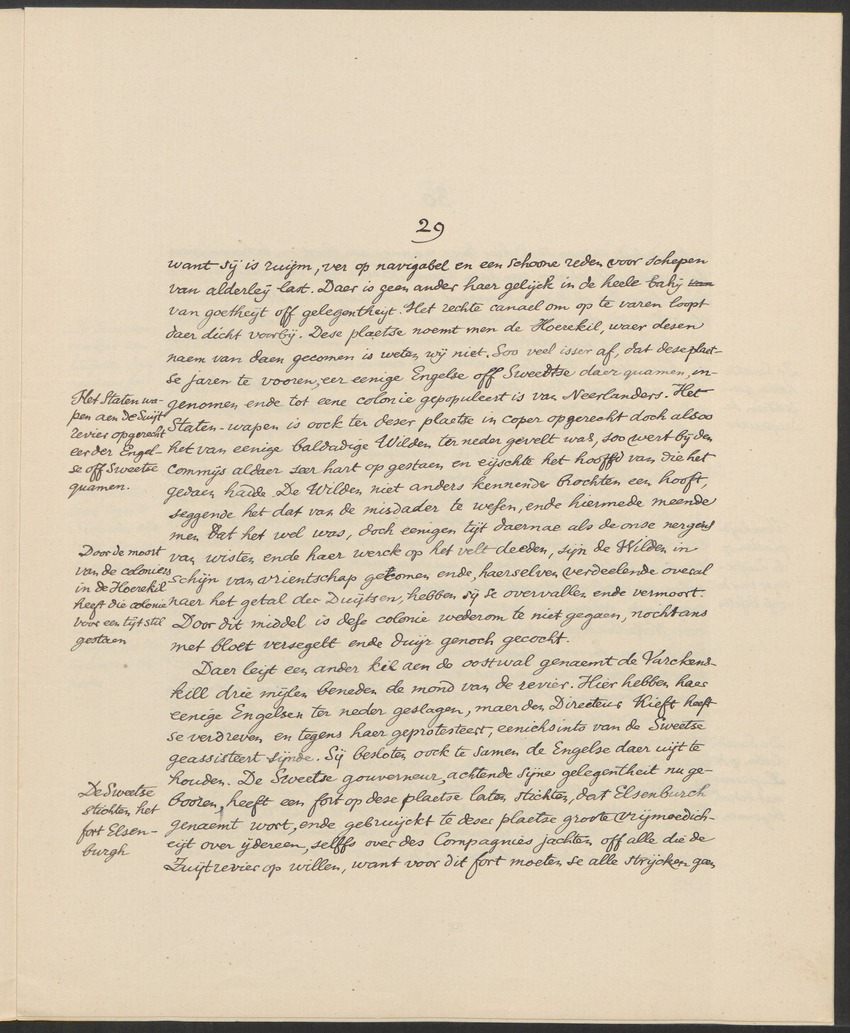 29
want sij is ruijm, ver op navigabel en een schoone reden voor schepen
van alderleij last. Daer is geen ander haer gelijck in de heele bahij van
van goetheyt off gelegentheyt. Het rechte canael om op te varen loopt
daer dicht voorbij. Dese plaetse noemt men de Hoerekil, waer desen
naem van daen gecomen is weten wij niet. Soo veel isser af, dat dese plaet-
se jaren te vooren, eer eenige Engelse off Sweedtse daer quamen, in-
genomen ende tot eene colonie gepopuleert is van Neerlanders. Het
Staten-wapen is oock ter deser plaetse in coper opgerecht doch alsoo
het van eenige baldadige Wilden ter neder gevelt was, soo wert bij den
Commijs aldaer seer hart op gestaen en eijschte het hooffd van die het
gedaen hadde. De Wilden niet anders kennende brochten een hooft,
seggende het dat van de misdader te wesen, ende hiermede meende
men dat het wel was, doch eenigen tijt daernae als de onse nergens
van wisten ende haer werck op het velt deeden, sijn de Wilden in
schijn van vrientschap gekomen ende, haerselven verdeelende overal
naer het getal der Duijtsen, hebben sij se overvallen ende vermoort.
Door dit middel is dese colonie wederom te niet gegaen, nochtans
met bloet versegelt ende duijr genoch gecocht.
Daer leijt een ander kil aen de oostwal genaemt de Varckens-
kill drie mijlen beneden de mond van de revier. Hier hebben haer
eenige Engelsen ter neder geslagen, maer den Directeur Kieft heeft
se verdreven en tegens haer geprotesteert, eenichsints van de Sweetse
geassisteert sijnde. Sij besloten oock te samen de Engelse daer uijt te
houden. De Sweetse gouverneur, achtende sijne gelegentheit nu ge-
booren, heeft een fort op dese plaetse laten stichten, dat Elsenburch
genaemt wort, ende gebruijckt te deser plaetse groote vrijmoedich-
eijt over ijdereen, selffs over des Compagnies jachten off alle die de
Zuijtrevier op willen, want voor dit fort moeten se alle strijcken gaen
Het Staten wa-
pen aen de Suijt
revier opgerecht
eer der Engel-
se off Sweetse
quamen.
Door de moort
van de coloniers
in de Hoerekil
heeft die colonie
voor een tijt stil
gestaen
De Sweetse
stichten het
fort Elsen-
burgh